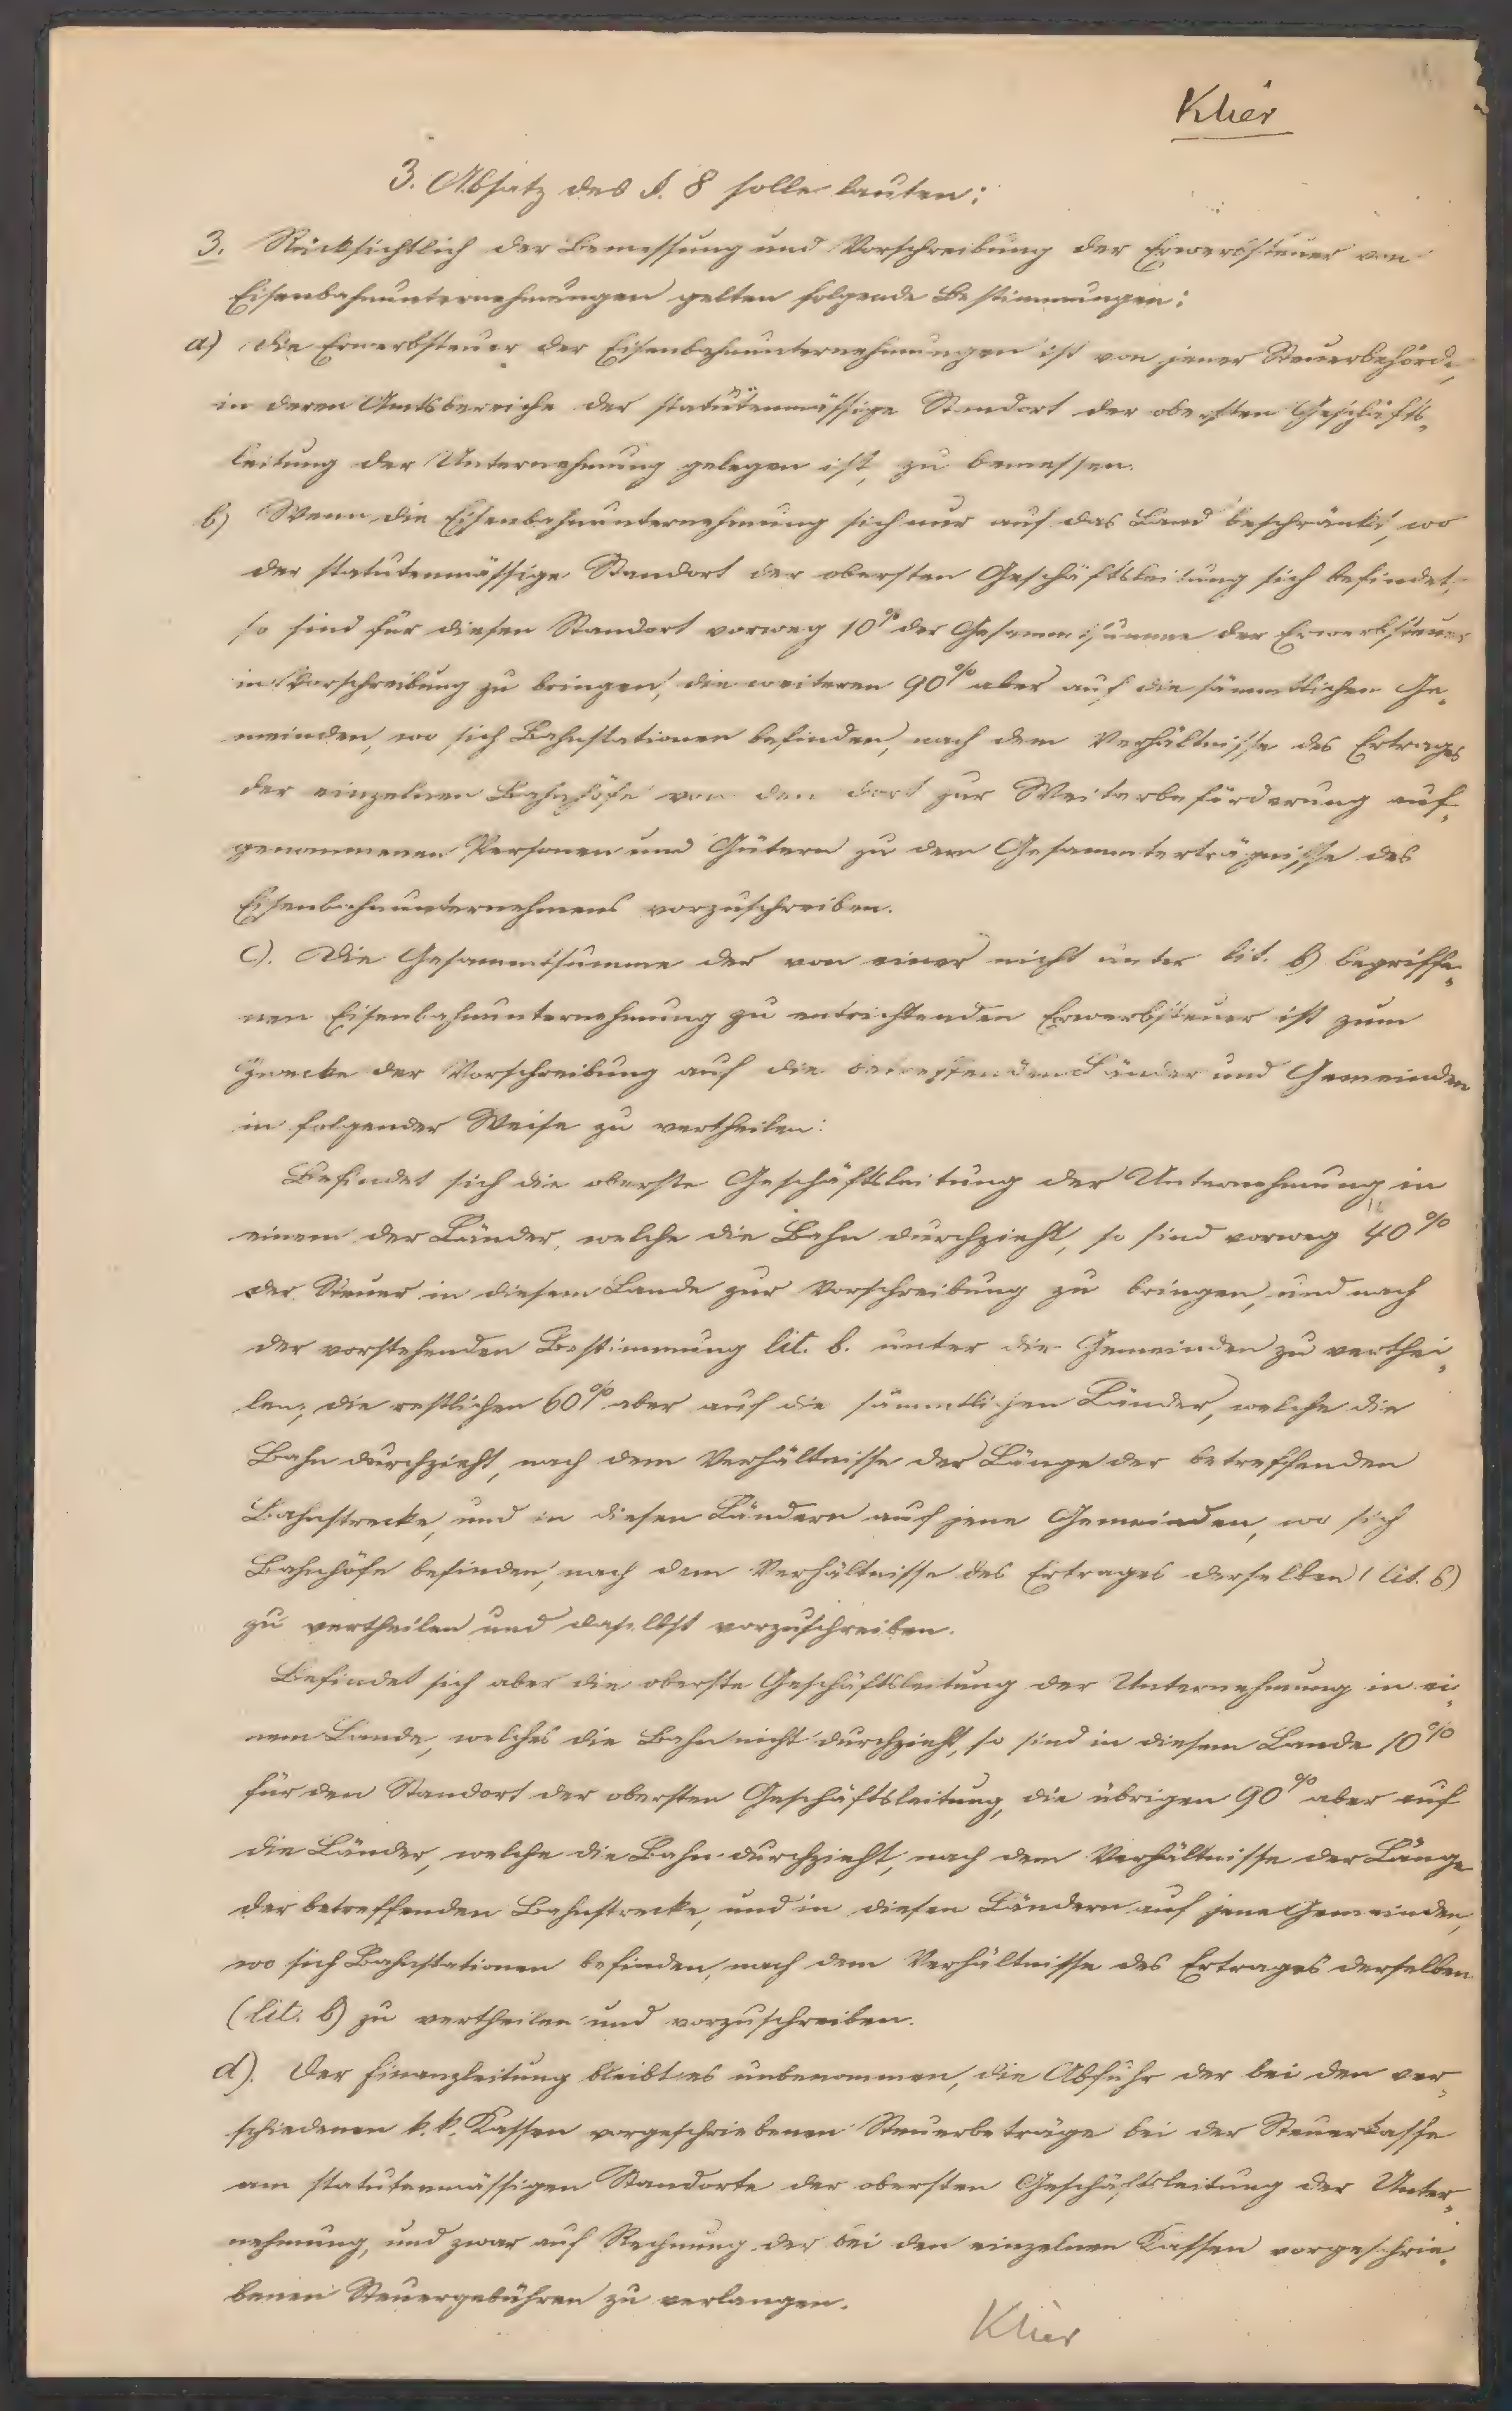 Klier
3. Absatz des §. 8 solle lauten:
3. Rücksichtlich der Bemessung und Vorschreibung der Erwerbsteuer von
Eisenbahnunternehmungen gelten folgende Bestimmungen:
a) Die Erwerbsteuer der Eisenbahnunternehmungen ist von jener Steuerbehörde,
in deren Amtsbereiche der statutenmässige Standort der obersten Geschäfts„
leitung der Unternehmung gelegen ist, zu bemessen.
b) Wenn die Eisenbahnunternehmung sich nur auf das Land beschränkt, wo
der statutenmässige Standort der obersten Geschäftsleitung sich befindet,
so sind für diesen Standort vorweg 10% der Gesammtsumme der Erwerbsteuer
in Vorschreibung zu bringen, die weiteren 90% aber auf die sämmtlichen Ge„
meinden, wo sich Bahnstationen befinden, nach dem Verhältnisse des Ertrages
der einzelnen Bahnhöfe von den dort zur Weiterbeförderung auf„
genommenen Personen und Gütern zu dem Gesammterträgnisse des
Eisenbahnunternehmens vorzuschreiben.
c). Die Gesammtsumme der von einer nicht unter lit. b) begriffe„
nen Eisenbahnunternehmung zu entrichtenden Erwerbsteuer ist zum
Zwecke der Vorschreibung auf die betreffenden Länder und Gemeinden
in folgender Weise zu vertheilen:
Befindet sich die oberste Geschäftsleitung der Unternehmung in
einem der Länder, welche die Bahn durchzieht, so sind vorweg 40%
der Steuer in diesem Lande zur Vorschreibung zu bringen, und nach
der vorstehenden Bestimmung lit. b. unter die Gemeinden zu verthei„
len; die restlichen 60% aber auf die sämmtlichen Länder, welche die
Bahn durchzieht, nach dem Verhältnisse der Länge der betreffenden
Bahnstrecke, und in diesen Ländern auf jene Gemeinden, wo sich
Bahnhöfe befinden, nach dem Verhältnisse des Ertrages derselben (lit. b)
zu vertheilen und daselbst vorzuschreiben.
Befindet sich aber die oberste Geschäftsleitung der Unternehmung in ei„
nem Lande, welches die Bahn nicht durchzieht, so sind in diesem Lande 10%
für den Standort der obersten Geschäftsleitung, die übrigen 90% aber auf
die Länder, welche die Bahn durchzieht, nach dem Verhältnisse der Länge
der betreffenden Bahnstrecke, und in diesen Ländern auf jene Gemeinden,
wo sich Bahnstationen befinden, nach dem Verhältnisse des Ertrages derselben
(lit. b) zu vertheilen und vorzuschreiben.
d). Der Finanzleitung bleibt es unbenommen, die Abfuhr der bei den ver„
schiedenen k. k. Kassen vorgeschriebenen Steuerbeträge bei der Steuerkasse
am statutenmässigen Standorte der obersten Geschäftsleitung der Unter„
nehmung, und zwar auf Rechnung der bei den einzelnen Kassen vorgeschrie„
benen Steuergebühren zu verlangen.
Klier